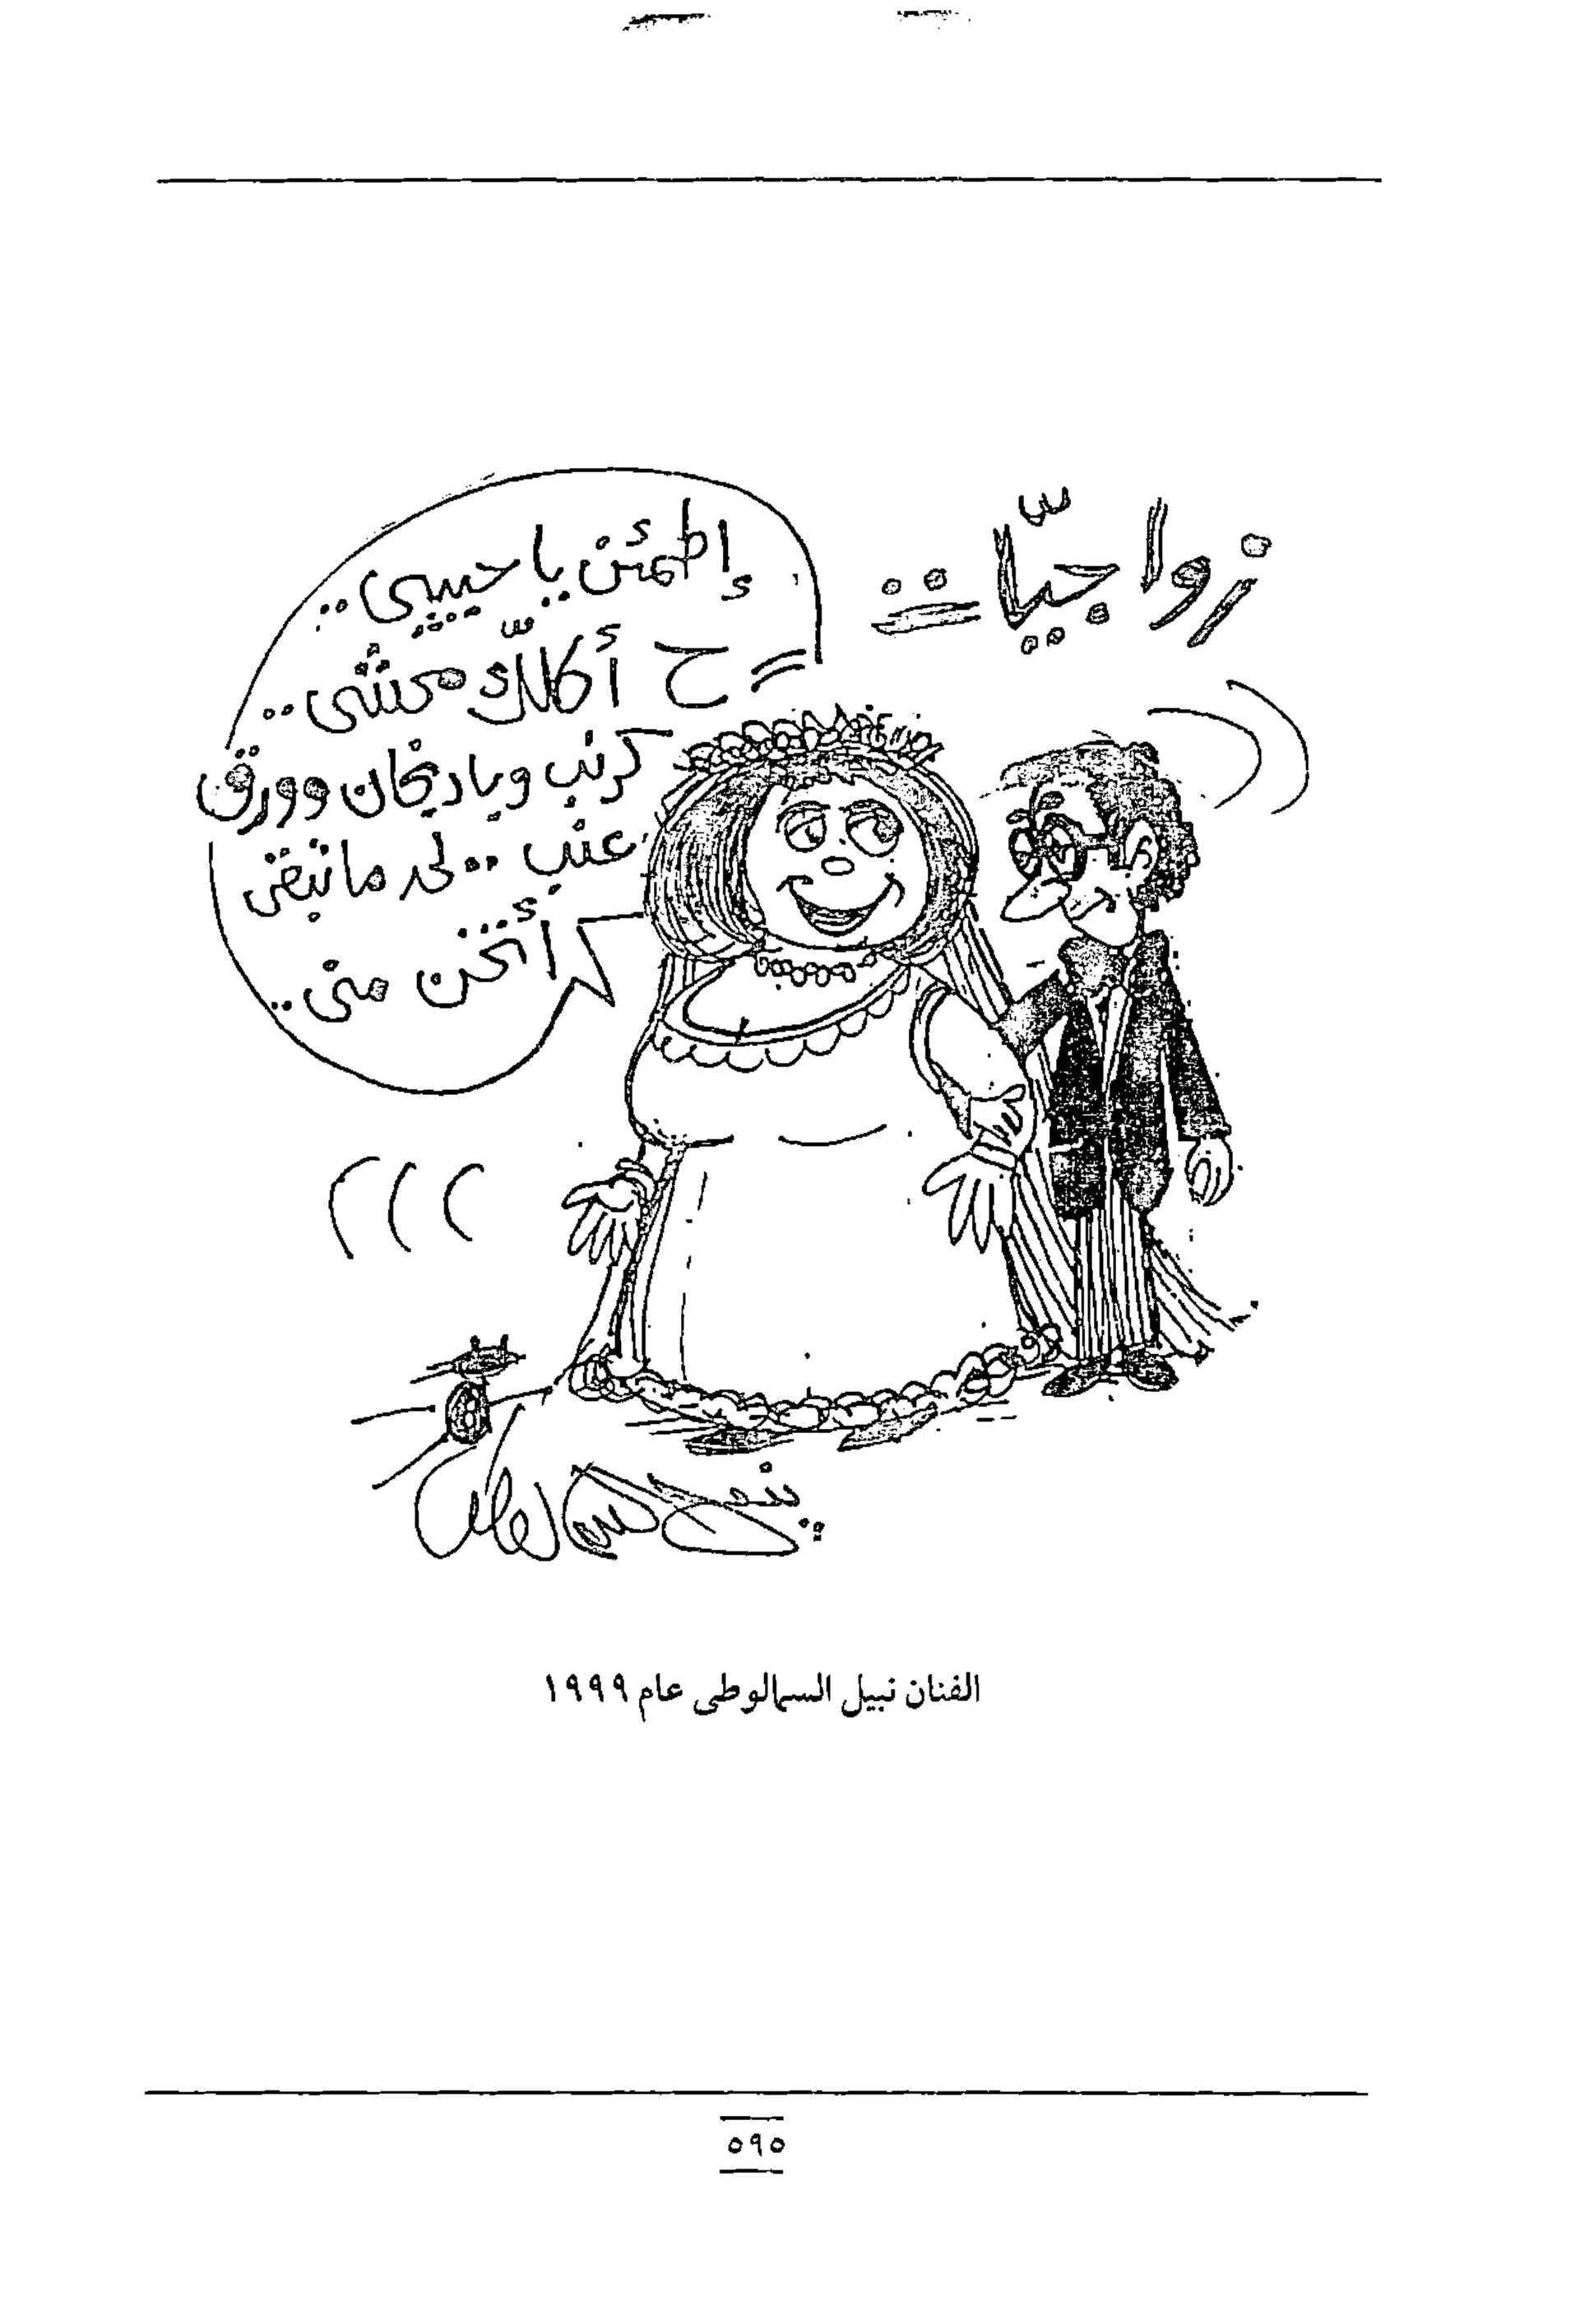 زواجيّات
= إطمئن يا حبيبى ..
ح أكلّك محشى ..
كرنب وبادنجان وورق
عنب .. لحد ما تبقى
أتخن منى ..
الفنان نبيل السمالوطى عام ١٩٩٩
٥٩٥